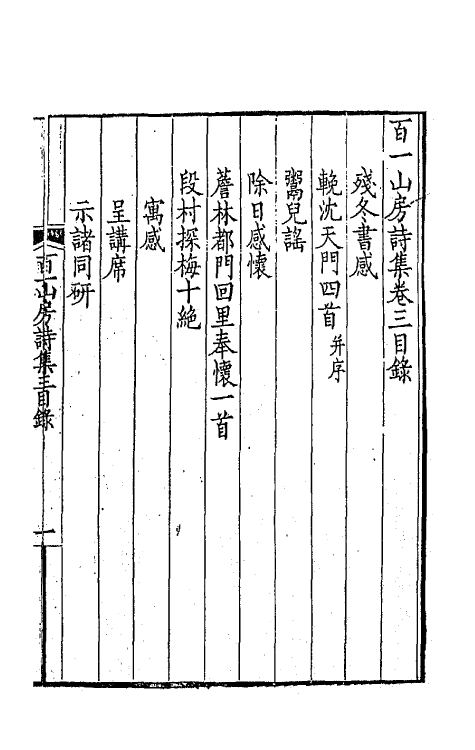 百一山房詩集卷三目錄
殘冬書感
輓沈天門四首并序
鬻兒謠
除日感懷
薝林都門回里奉懷一首
段村探梅十絕
寓感
呈講席
示諸同研
百一山房詩集三目錄 一